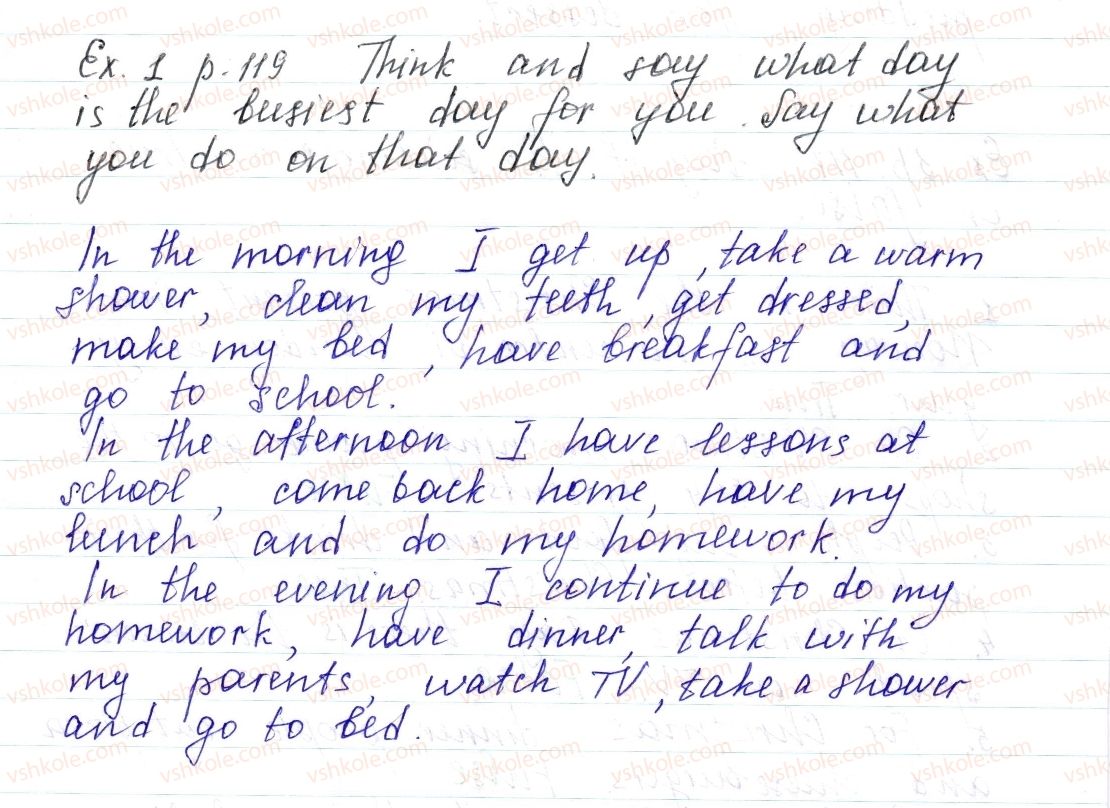 Ex. 1 p. 119 Think and say what day
is the busiest day for you. Say what
you do on that day.
In the morning I get up, take a warm
shower, clean my teeth, get dressed,
make my bed, have breakfast and
go to school.
In the afternoon I have lessons at
school, come back home, have my
lunch and do my homework.
In the evening I continue to do my
homework, have dinner, talk with
my parents, watch TV, take a shower
and go to bed.